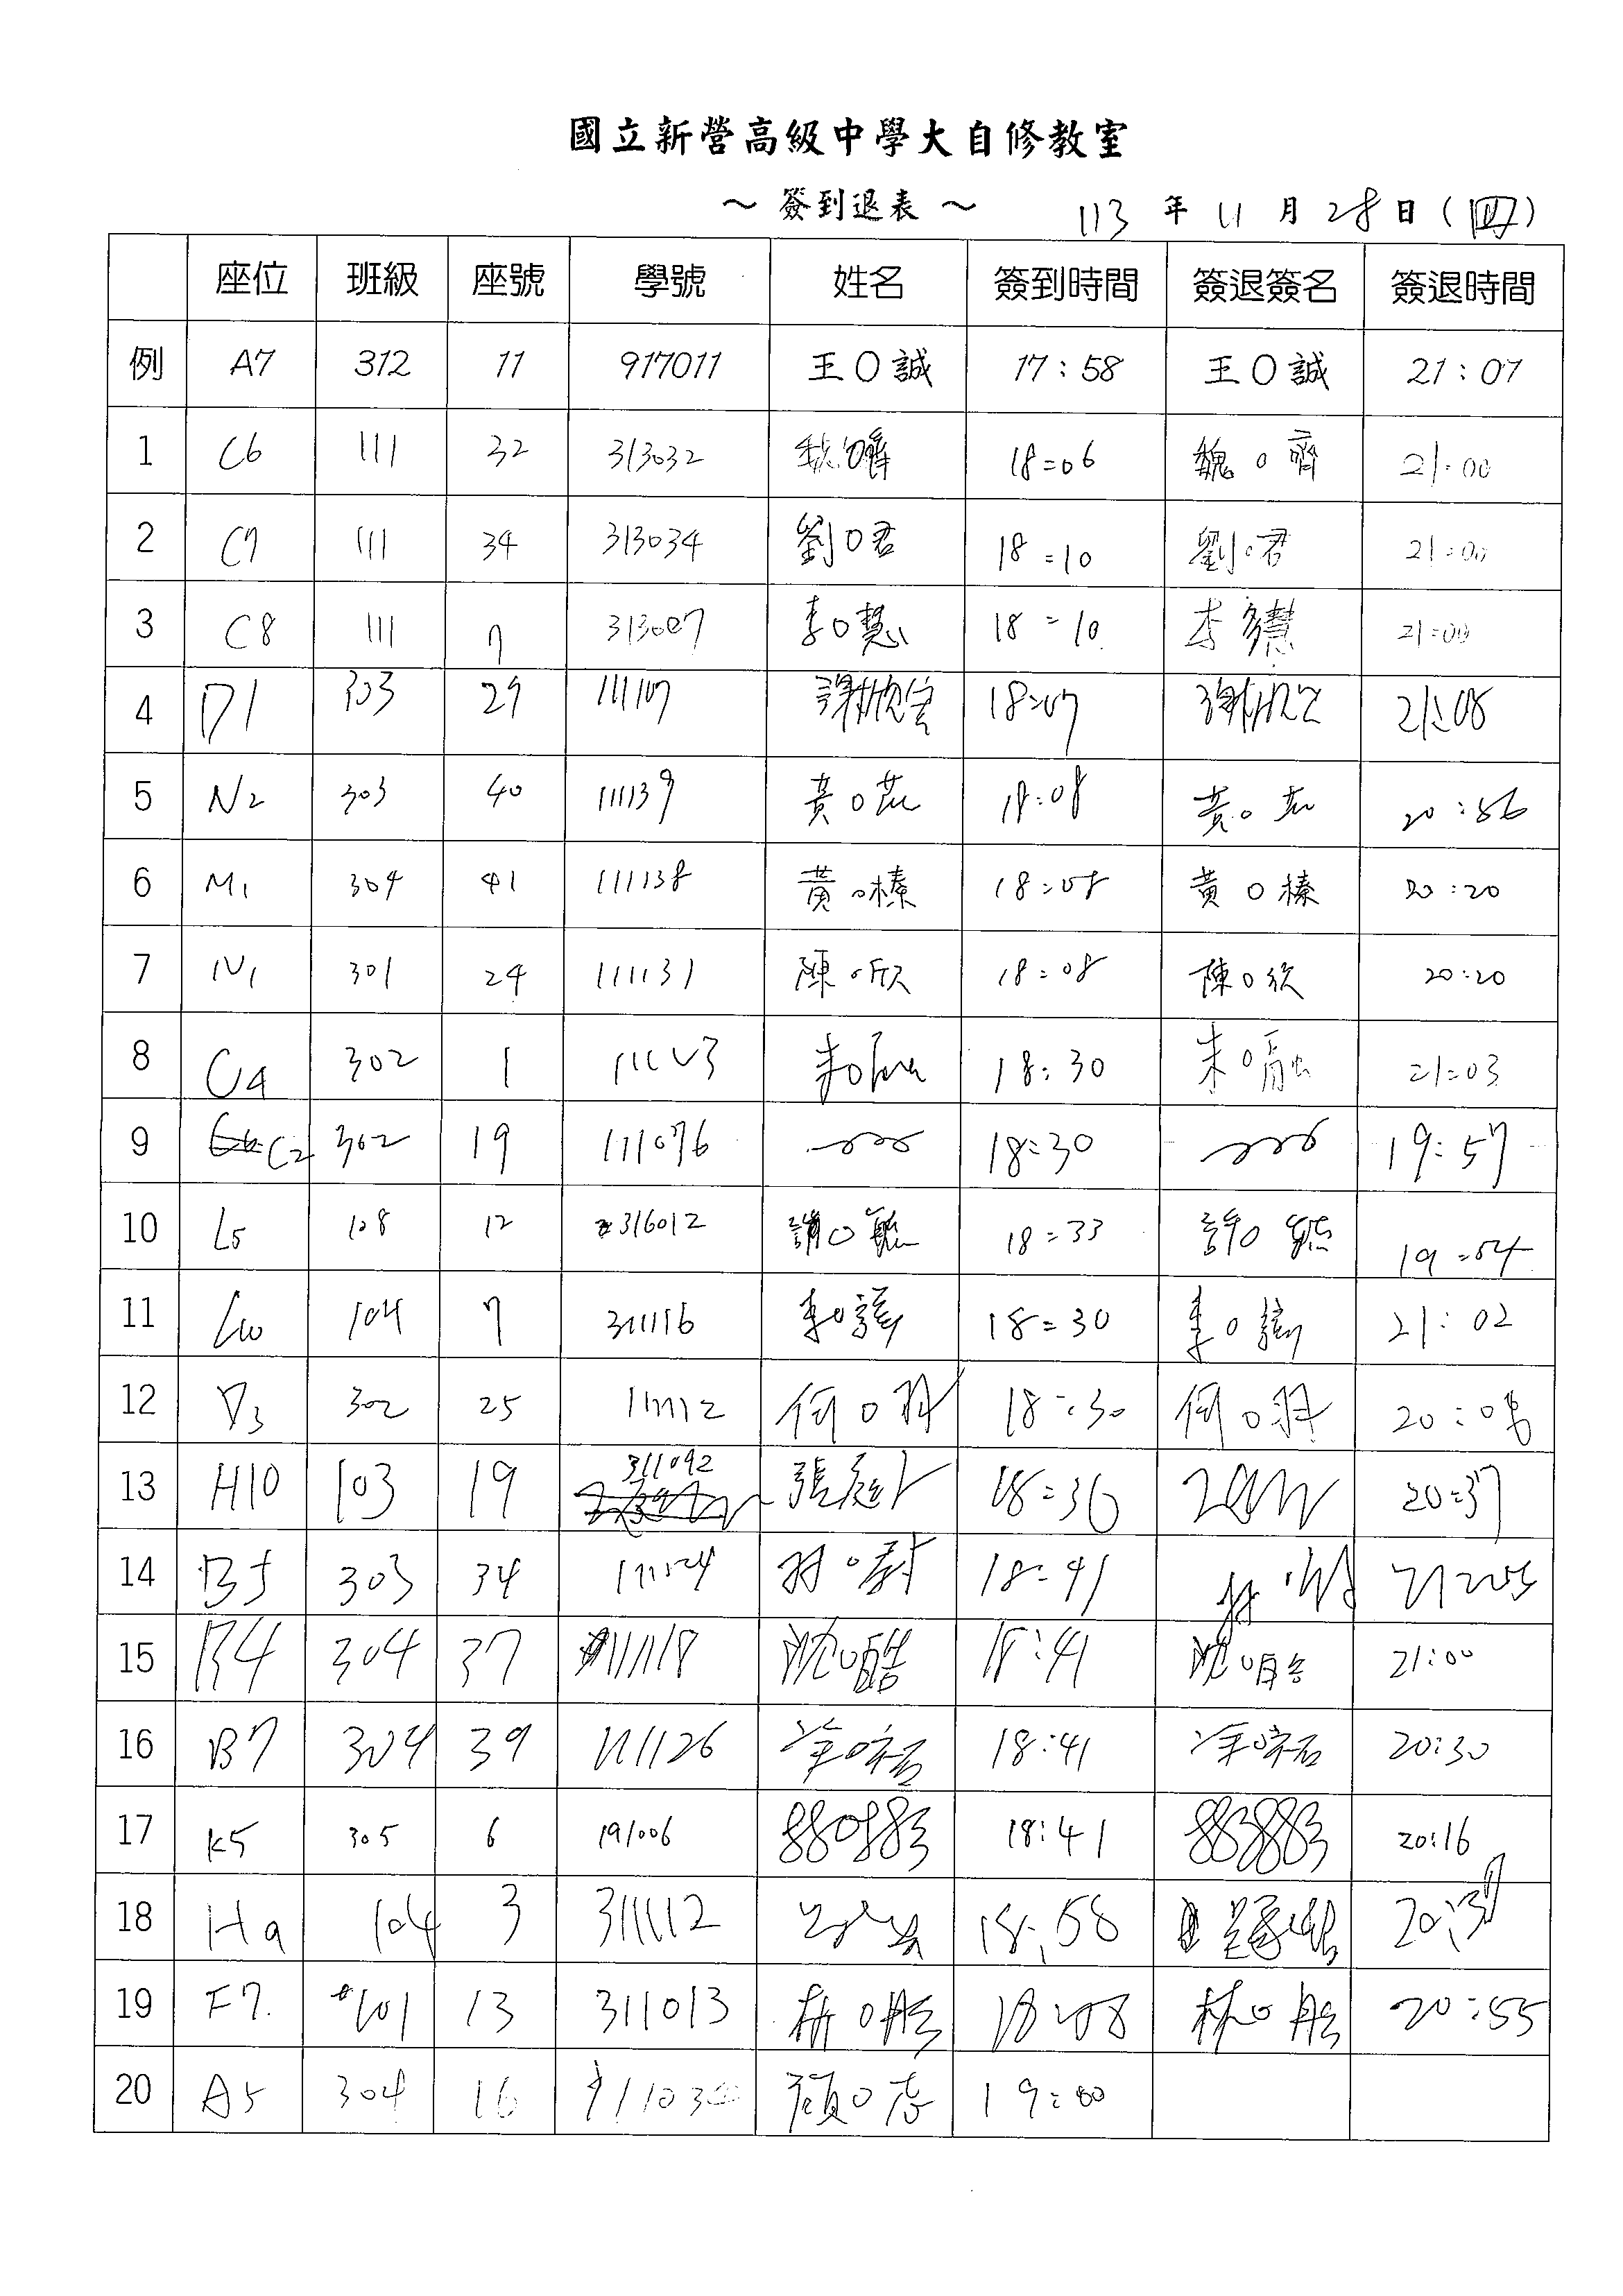 國立新營高級中學大自修教室
～ 簽到退表 ～ 113 年 11 月 28 日 (四)
座位 班級 座號 學號 姓名 簽到時間 簽退簽名 簽退時間
例 A7 312 11 917011 王○誠 17:58 王○誠 21:07
1 C6 111 32 313032 18:06 魏○齊 21:00
2 C7 111 34 313034 劉○君 18:10 劉○君 21:00
3 C8 111 7 313007 李○慧 18:10 李 慧 21:00
4 D1 303 29 111107 謝欣 18:07 謝欣 21:08
5 N2 303 40 111139 黃○ 18:08 黃○ 20:56
6 M1 304 41 111138 黃○榛 18:08 黃○榛 20:20
7 N1 301 24 111131 陳○欣 18:08 陳○欣 20:20
8 C4 302 1 朱○ 18:30 朱○ 21:03
9 C2 302 19 111076 18:30 19:57
10 L5 108 12 316012 18:33 許○ 19:54
11 104 7 311116 李○ 18:30 李○ 21:02
12 D3 302 25 何○ 18:30 何○ 20:08
13 H10 103 19 311092 張庭 18:36 20:37
14 B5 303 34 18:41 21:05
15 B4 304 37 111118 沈○皓 18:41 沈○ 21:00
16 B7 304 39 111126 18:41 20:30
17 K5 305 6 191006 18:41 20:16
18 H9 104 3 311112 18:58 20:37
19 F7 101 13 311013 林○彤 18:58 林○彤 20:55
20 A5 304 16 顏○ 19:00